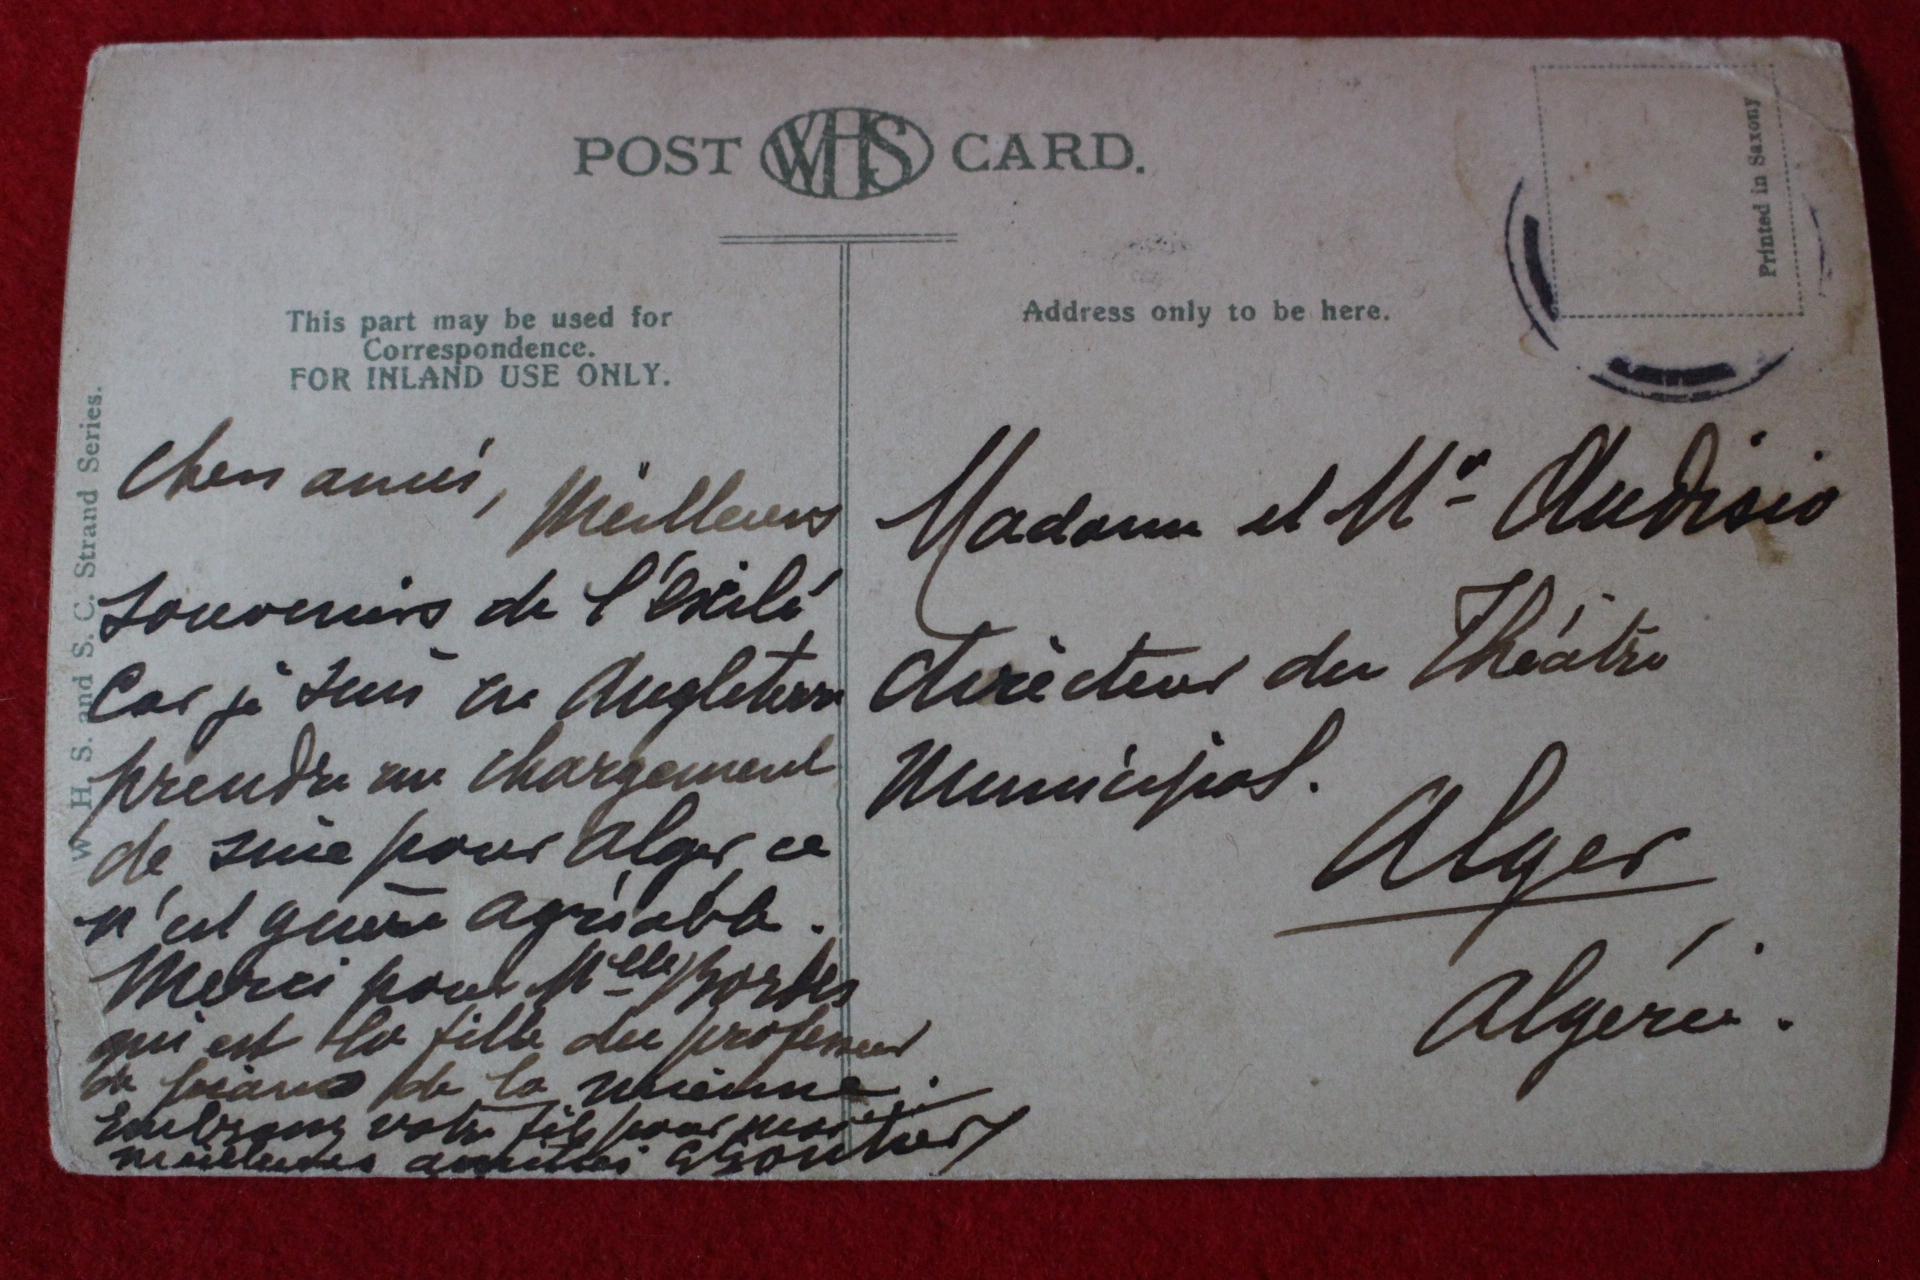 POST WHS CARD.
Printed in Saxony
This part may be used for
Correspondence.
FOR INLAND USE ONLY.
Address only to be here.
W. H. S. and S. C. Strand Series.
Chers amis, Meilleurs
souvenirs de l'Exilé
Car je suis en Angleterre
prendre un chargement
de suie pour Alger, ce
n'est guère agréable.
Merci pour Mlle Bordes
qui est la fille du professeur
de piano de la mienne.
Embrassez votre fils pour moi
meilleures amitiés
Madame et Mr Audisio
directeur du Théâtre
Municipal.
Alger
Algérie.